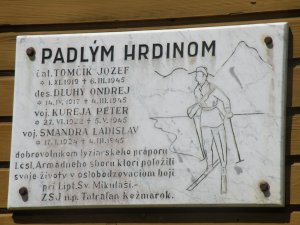 PADLÝM HRDINOM
čat. TOMČÍK JOZEF
* 1. XI. 1919 + 6. III. 1945
des. DLUHÝ ONDREJ
* 14. IV. 1917 + 4. III. 1945
voj. KUREJA PETER
* 27. VI. 1922 + 5. V. 1945
voj. SMANDRA LADISLAV
* 17. I. 1924 + 4. III. 1945
dobrovoľníkom lyžiarskeho práporu
I. čsl. Armádneho sboru ktorí položili
svoje životy v oslobodzovacom boji
pri Lipt. Sv. Mikuláši.-
ZSJ n.p. Tatraľan Kežmarok.